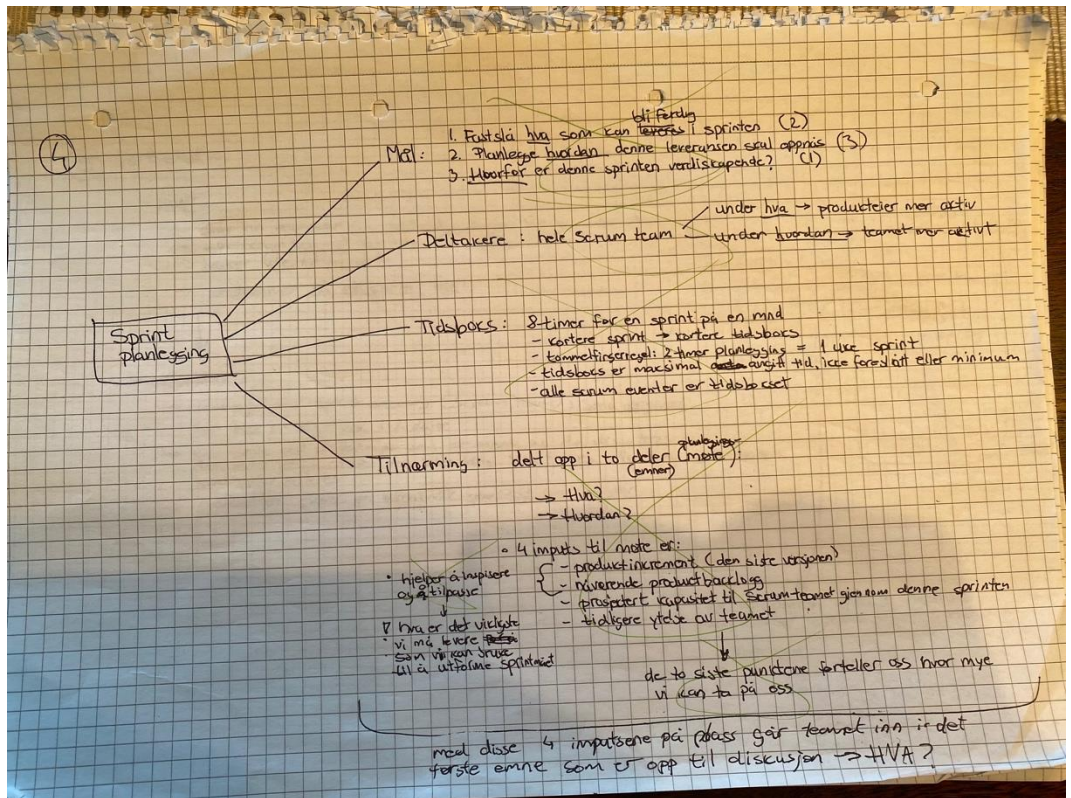 4
Mål:
1. Fastslå hva som kan bli ferdig i sprinten (2)
2. Planlegge hvordan denne leveransen skal oppnås (3)
3. Hvorfor er denne sprinten verdiskapende? (1)
under hva → produkteier mer aktiv
Deltakere : hele Scrum team
under hvordan → teamet mer aktivt
Sprint
planlegging
Tidsboks : 8-timer for en sprint på en mnd
- kortere sprint → kortere tidsboks
- tommelfingerregel: 2-timer planlegging = 1 uke sprint
- tidsboks er maksimal angitt tid, ikke foreslått eller minimum
- alle scrum eventer er tidsbokset
Tilnærming : delt opp i to deler (møte) :
(emner)
→ Hva?
→ Hvordan?
• 4 inputs til møte er:
- productincrement (den siste versjonen)
- nåverende productbacklogg
- prosjektert kapasitet til Scrum-teamet gjennom denne sprinten
- tidligere ytelse av teamet
• hjelper å inspisere
og å tilpasse
↓
hva er det viktigste
vi må levere
som vi kan bruke
til å utforme sprintmålet
↓
de to siste punktene forteller oss hvor mye
vi kan ta på oss
med disse 4 inputsene på plass går teamet inn i det
første emne som er opp til diskusjon → HVA?